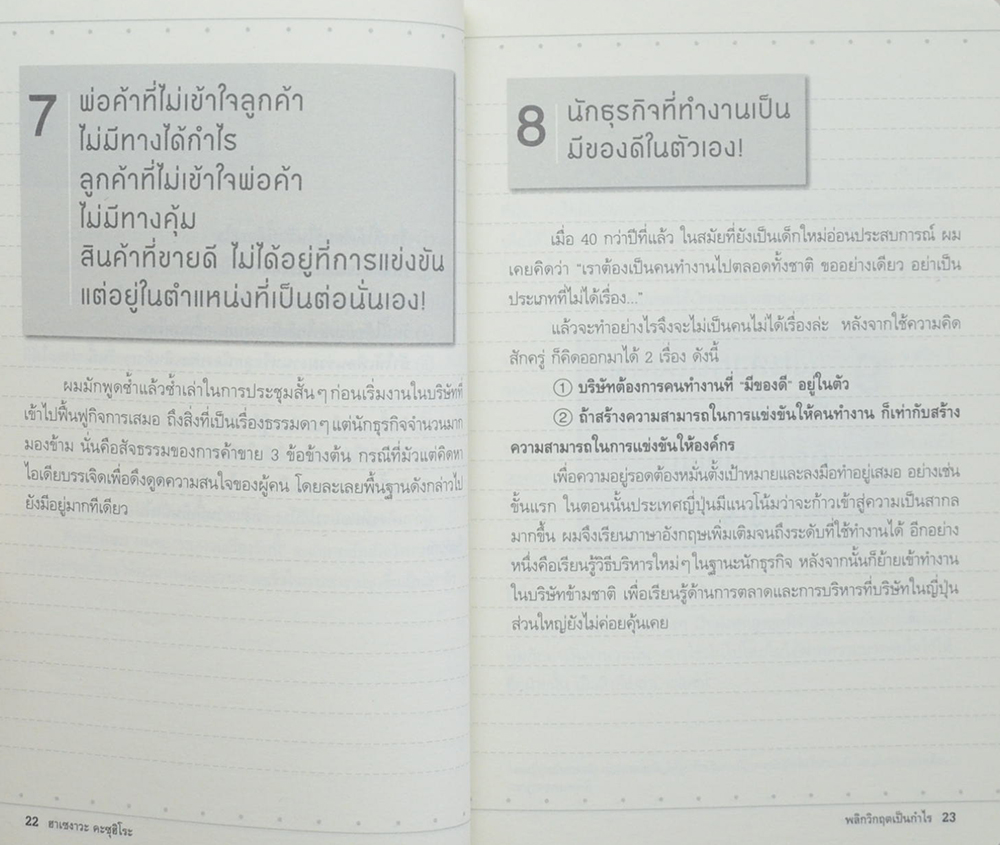 7
พ่อค้าที่ไม่เข้าใจลูกค้า
ไม่มีทางได้กำไร
ลูกค้าที่ไม่เข้าใจพ่อค้า
ไม่มีทางคุ้ม
สินค้าที่ขายดี ไม่ได้อยู่ที่การแข่งขัน
แต่อยู่ในตำแหน่งที่เป็นต่อนั่นเอง!
ผมมักพูดซ้ำแล้วซ้ำเล่าในการประชุมสั้นๆ ก่อนเริ่มงานในบริษัทที่
เข้าไปฟื้นฟูกิจการเสมอ ถึงสิ่งที่เป็นเรื่องธรรมดาๆ แต่นักธุรกิจจำนวนมาก
มองข้าม นั่นคือสัจธรรมของการค้าขาย 3 ข้อข้างต้น กรณีที่มัวแต่คิดหา
ไอเดียบรรเจิดเพื่อดึงดูดความสนใจของผู้คน โดยละเลยพื้นฐานดังกล่าวไป
ยังมีอยู่มากทีเดียว
22 ฮาเซงาวะ คะซุฮิโระ
8
นักธุรกิจที่ทำงานเป็น
มีของดีในตัวเอง!
เมื่อ 40 กว่าปีที่แล้ว ในสมัยที่ยังเป็นเด็กใหม่อ่อนประสบการณ์ ผม
เคยคิดว่า "เราต้องเป็นคนทำงานไปตลอดทั้งชาติ ขออย่างเดียว อย่าเป็น
ประเภทที่ไม่ได้เรื่อง..."
แล้วจะทำอย่างไรจึงจะไม่เป็นคนไม่ได้เรื่องล่ะ หลังจากใช้ความคิด
สักครู่ ก็คิดออกมาได้ 2 เรื่อง ดังนี้
① บริษัทต้องการคนทำงานที่ "มีของดี" อยู่ในตัว
② ถ้าสร้างความสามารถในการแข่งขันให้คนทำงาน ก็เท่ากับสร้าง
ความสามารถในการแข่งขันให้องค์กร
เพื่อความอยู่รอดต้องหมั่นตั้งเป้าหมายและลงมือทำอยู่เสมอ อย่างเช่น
ขั้นแรก ในตอนนั้นประเทศญี่ปุ่นมีแนวโน้มว่าจะก้าวเข้าสู่ความเป็นสากล
มากขึ้น ผมจึงเรียนภาษาอังกฤษเพิ่มเติมจนถึงระดับที่ใช้ทำงานได้ อีกอย่าง
หนึ่งคือเรียนรู้วิธีบริหารใหม่ๆ ในฐานะนักธุรกิจ หลังจากนั้นก็ย้ายเข้าทำงาน
ในบริษัทข้ามชาติ เพื่อเรียนรู้ด้านการตลาดและการบริหารที่บริษัทในญี่ปุ่น
ส่วนใหญ่ยังไม่ค่อยคุ้นเคย
พลิกวิกฤตเป็นกำไร 23